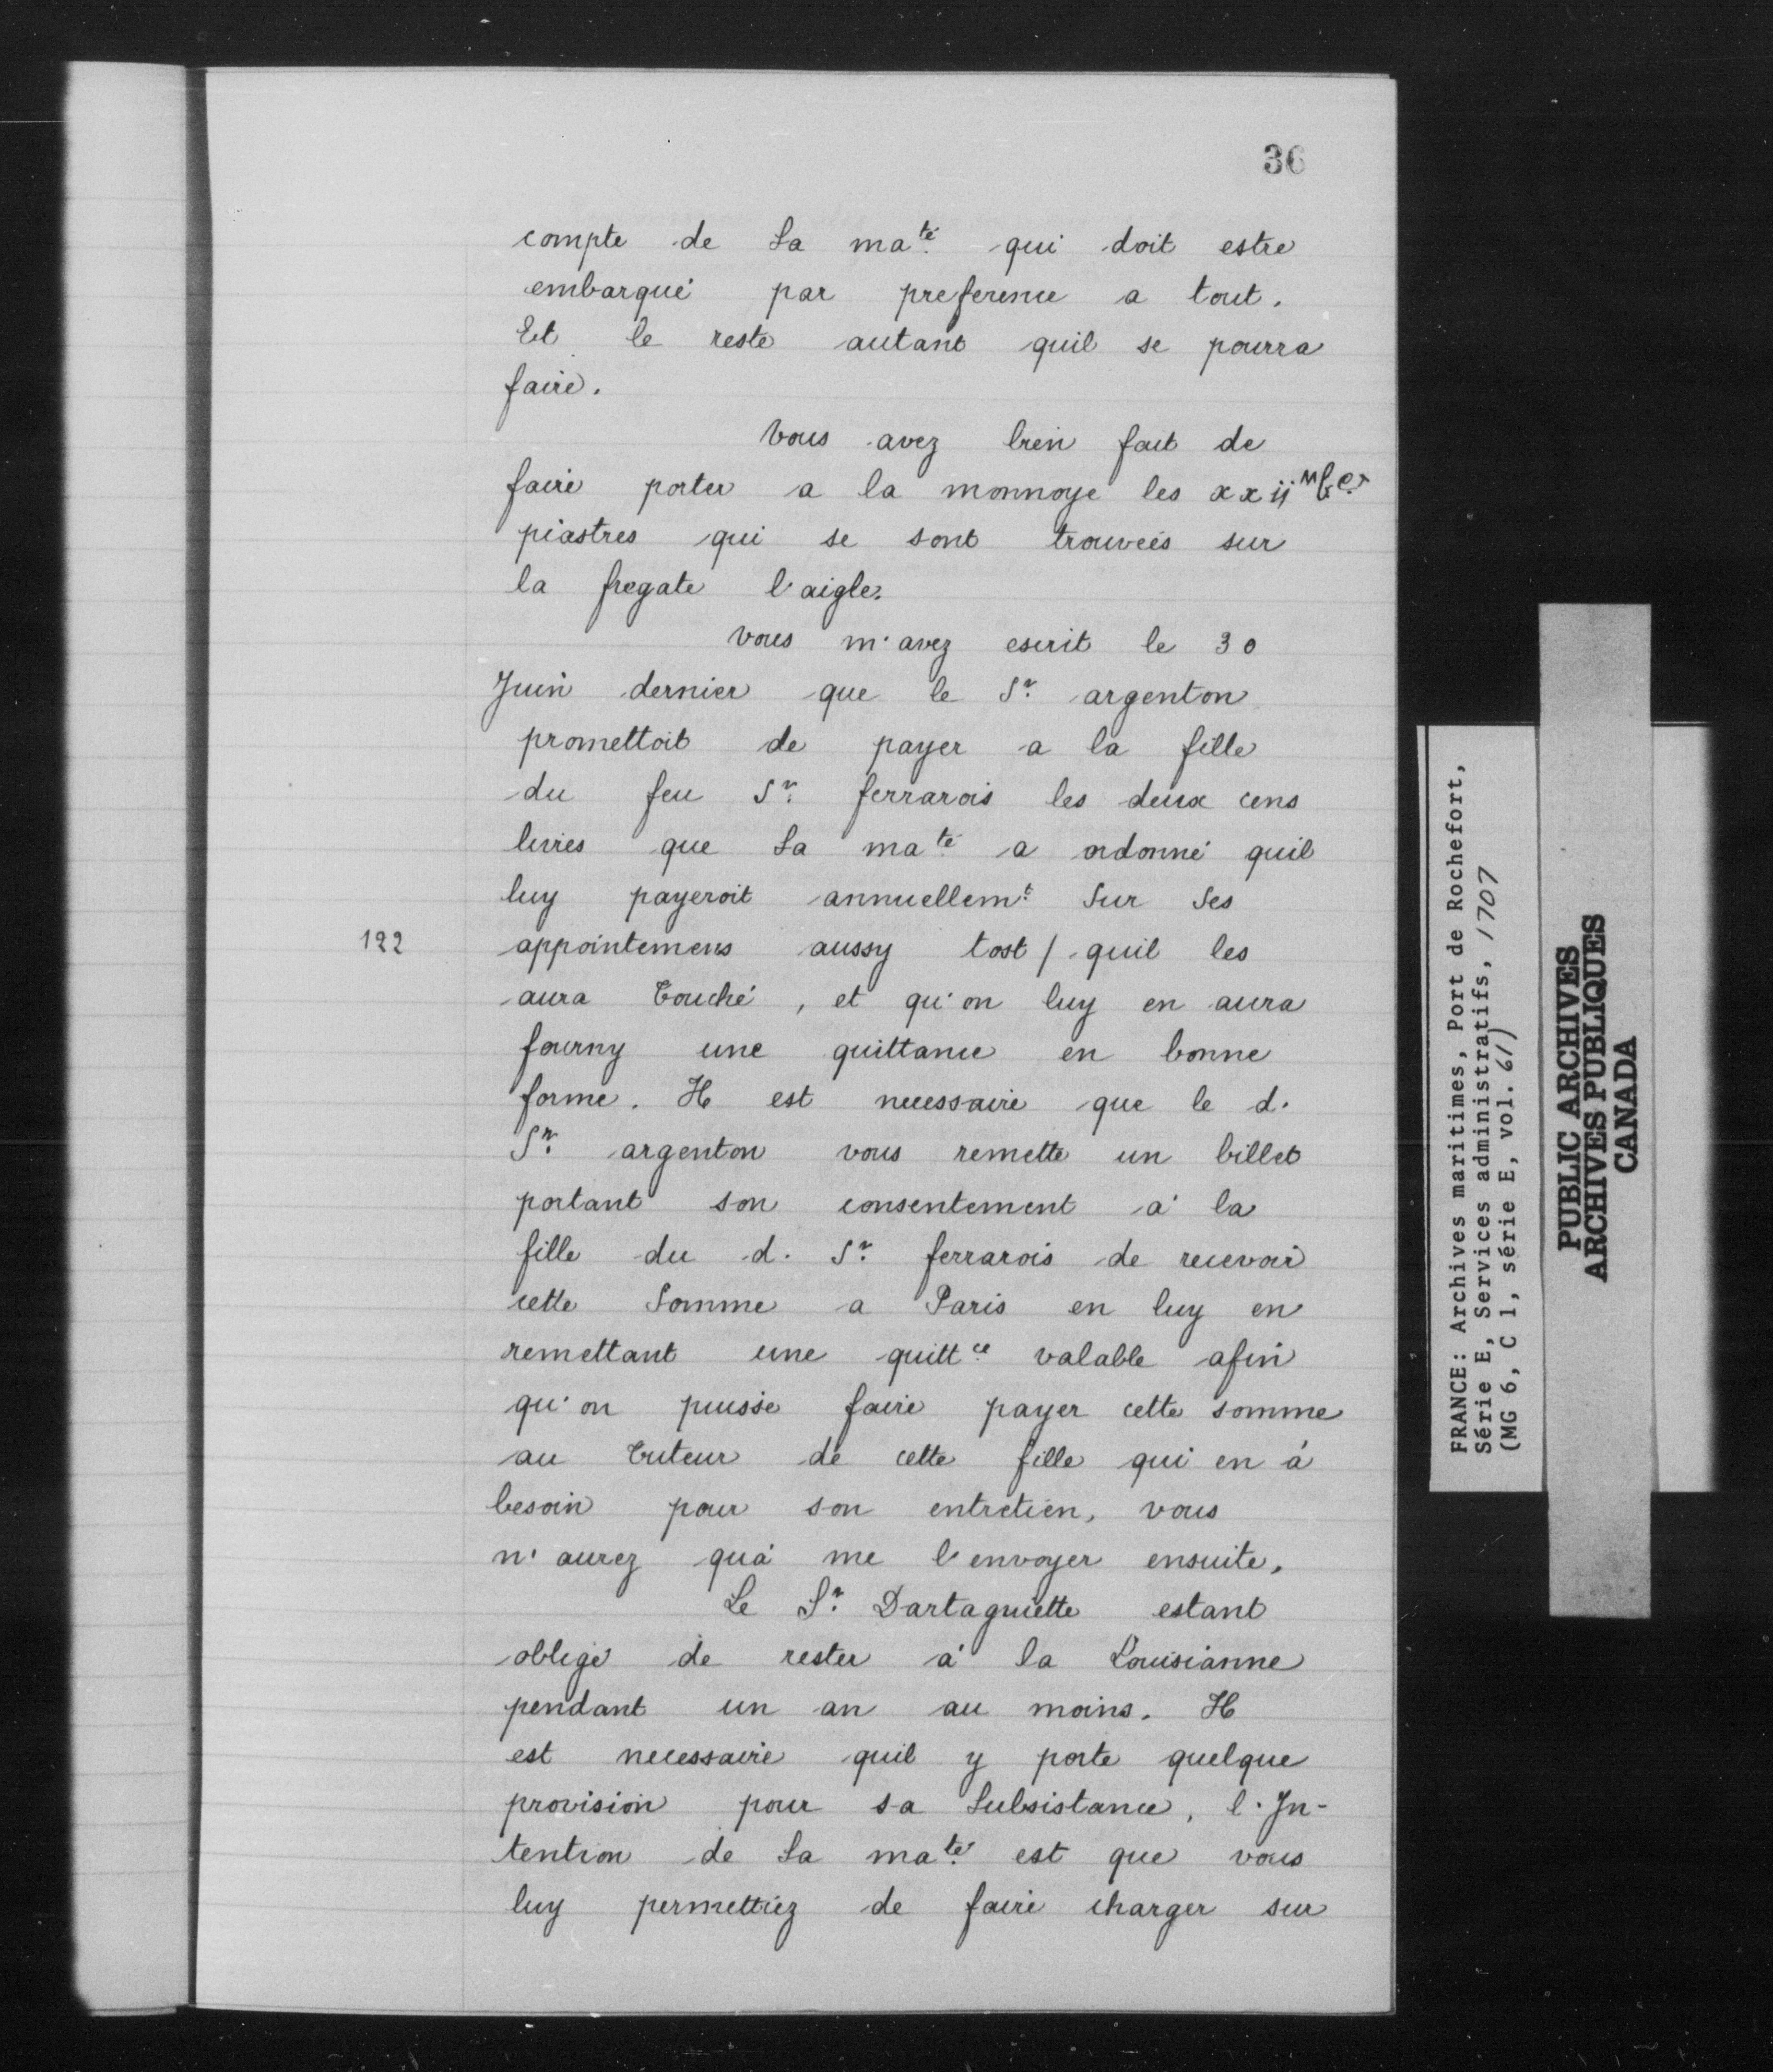 36
compte de Sa ma.té qui doit estre
embarqué par preference a tout.
Et le reste autant quil se pourra
faire.
Vous avez bien fait de
faire porter a la monnoye les xxii
piastres qui se sont trouveés sur
la fregate l'aigle.
Vous m'avez escrit le 30
Juin dernier que le S.r argenton
promettoit de payer a la fille
du feu S.r ferrarois les deux cens
livres que Sa ma.té a ordonné quil
luy payeroit annuellem.t Sur Ses
122 appointemens aussy tost / quil les
aura Touché, et qu'on luy en aura
fourny une quittance en bonne
forme. Il est necessaire que le d.
S.r argenton vous remette un billet
portant son consentement à la
fille du d. S.r ferrarois de recevoir
cette Somme a Paris en luy en
remettant une quitt.ce valable afin
qu'on puisse faire payer cette somme
au Tuteur de cette fille qui en à
besoin pour son entretien, vous
n'aurez quà me l'envoyer ensuite.
Le S.r Dartaguiette estant
obligé de rester à la Louisianne
pendant un an au moins. Il
est necessaire quil y porte quelque
provision pour sa Subsistance, l'In-
tention de Sa ma.té est que vous
luy permettiez de faire charger sur
FRANCE: Archives maritimes, Port de Rochefort,
Série E, Services administratifs, 1707
(MG 6, C 1, série E, vol. 61)
PUBLIC ARCHIVES
ARCHIVES PUBLIQUES
CANADA